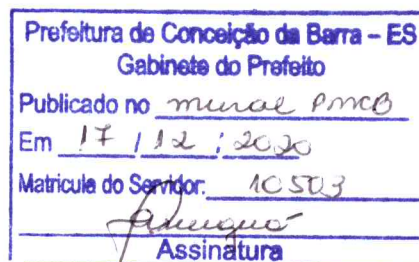 Prefeitura de Conceição da Barra – ES
Gabinete do Prefeito
Publicado no mural PMCB
Em 17 / 12 / 2020
Matricula do Servidor: 10503
Assinatura